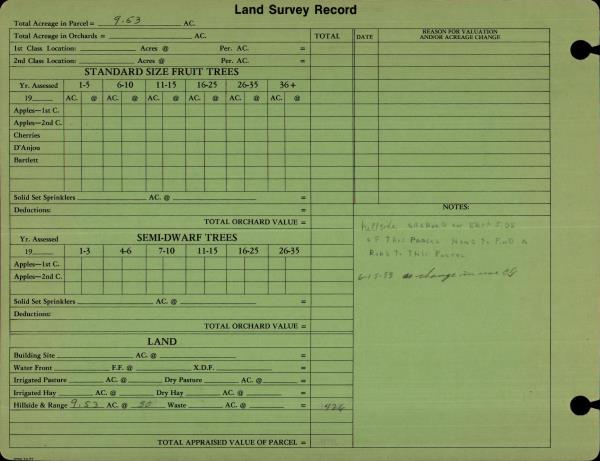 Land Survey Record
Total Acreage in Parcel = 9.53 AC.
Total Acreage in Orchards = AC. TOTAL DATE REASON FOR VALUATION AND/OR ACREAGE CHANGE
1st Class Location: Acres @ Per. AC. =
2nd Class Location: Acres @ Per. AC. =
STANDARD SIZE FRUIT TREES
Yr. Assessed 1-5 6-10 11-15 16-25 26-35 36+
19 AC. @ AC. @ AC. @ AC. @ AC. @ AC. @
Apples—1st C.
Apples—2nd C.
Cherries
D'Anjou
Bartlett
Solid Set Sprinklers AC. @ =
Deductions: =
TOTAL ORCHARD VALUE =
NOTES:
hillside on East Side
of This Parcel to Find a
Road to This Parcel
6-15-83 no change in use
SEMI-DWARF TREES
Yr. Assessed
19 1-3 4-6 7-10 11-15 16-25 26-35
Apples—1st C.
Apples—2nd C.
Solid Set Sprinklers AC. @ =
Deductions:
TOTAL ORCHARD VALUE =
LAND
Building Site AC. @ =
Water Front F.F. @ X.D.F. =
Irrigated Pasture AC. @ Dry Pasture AC. @ =
Irrigated Hay AC. @ Dry Hay AC. @ =
Hillside & Range 9.53 AC. @ 50 Waste AC. @ = 426
TOTAL APPRAISED VALUE OF PARCEL =